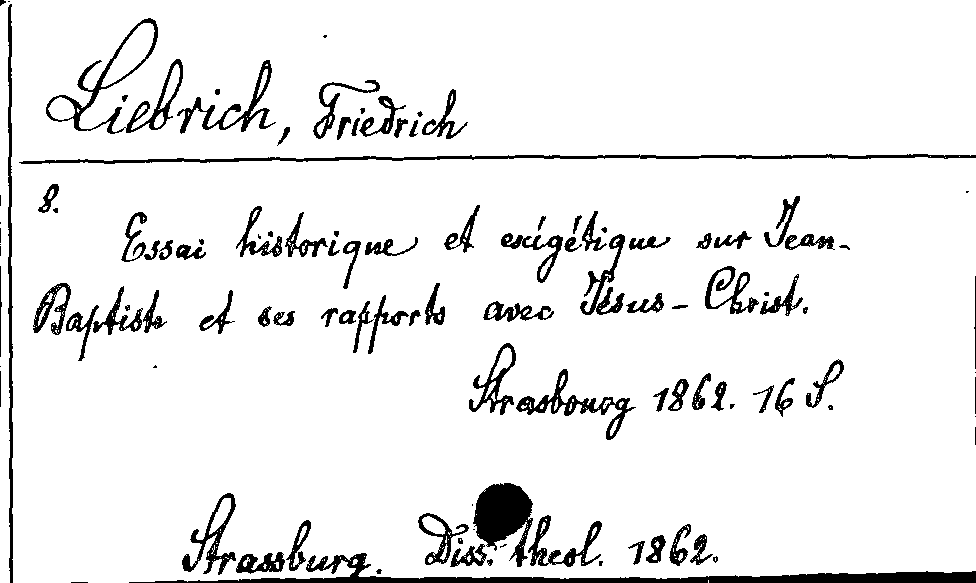 Liebrich, Friedrich
8.
Essai historique et exégétique sur Jean-
Baptiste et ses rapports avec Jésus-Christ.
Strasbourg 1862. 16 S.
Strassburg. Diss. theol. 1862.